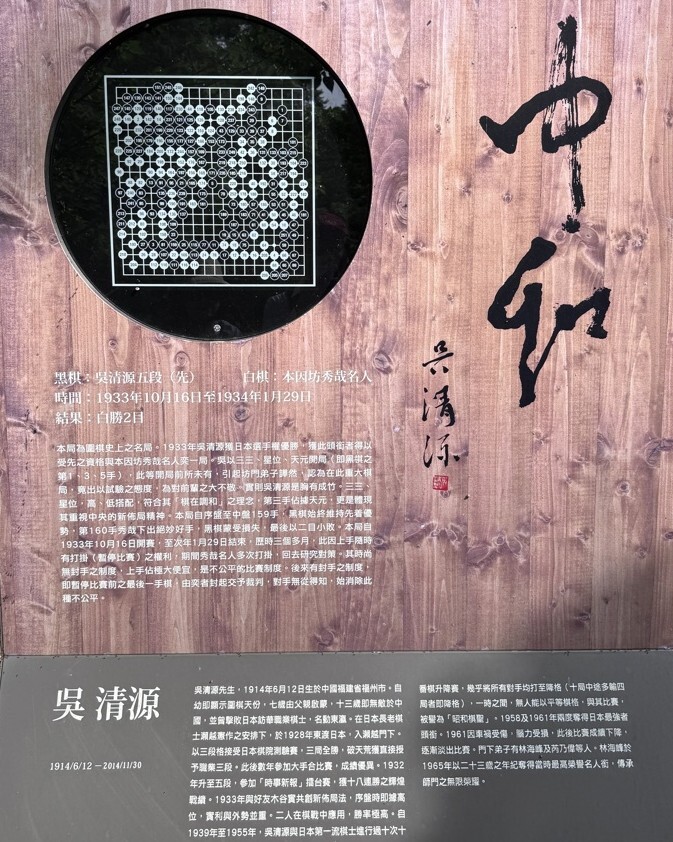 中和
吳清源
黑棋：吳清源五段（先）　白棋：本因坊秀哉名人
時間：1933年10月16日至1934年1月29日
結果：白勝2目
本局為圍棋史上之名局。1933年吳清源獲日本選手權優勝，獲此頭銜者得以
受先之資格與本因坊秀哉名人奕一局。吳以三三、星位、天元開局（即黑棋之
第1、3、5手），此等開局前所未有，引起坊門弟子譁然，認為在此重大棋
局，竟出以試驗之態度，為對前輩之大不敬。實則吳清源是胸有成竹。三三、
星位，高、低搭配，符合其「棋在調和」之理念，第三手佔據天元，更是體現
其重視中央的新佈局精神。本局自序盤至中盤159手，黑棋始終維持先着優
勢，第160手秀哉下出絕妙好手，黑棋蒙受損失，最後以二目小敗。本局自
1933年10月16日開賽，至次年1月29日結束，歷時三個多月，此因上手隨時
有打掛（暫停比賽）之權利，期間秀哉名人多次打掛，回去研究對策。其時尚
無封手之制度，上手佔極大便宜，是不公平的比賽制度。後來有封手之制度，
即暫停比賽前之最後一手棋，由奕者封起交予裁判，對手無從得知，始消除此
種不公平。
吳清源
1914/6/12－2014/11/30
吳清源先生，1914年6月12日生於中國福建省福州市。自
幼即顯示圍棋天份，七歲由父親啟蒙，十三歲即無敵於中
國，並曾擊敗日本訪華職業棋士，名動東瀛。在日本長老棋
士瀨越憲作之安排下，於1928年東渡日本，入瀨越門下。
以三段格接受日本棋院測驗賽，三局全勝，破天荒獲直接授
予職業三段。此後數年參加大手合比賽，成績優異。1932
年升至五段，參加「時事新報」擂台賽，獲十八連勝之輝煌
戰績。1933年與好友木谷實共創新佈局法，序盤時即據高
位，實利與外勢並重。二人在棋戰中應用，勝率極高。自
1939年至1955年，吳清源與日本第一流棋士進行過十次十
番棋升降賽，幾乎將所有對手均打至降格（十局中途多輸四
局者即降格），一時之間，無人能以平等棋格，與其比賽，
被譽為「昭和棋聖」。1958及1961年兩度奪得日本最強者
頭銜。1961因車禍受傷，腦力受損，此後比賽成績下降，
逐漸淡出比賽。門下弟子有林海峰及芮乃偉等人。林海峰於
1965年以二十三歲之年紀奪得當時最高榮譽名人銜，傳承
師門之無限榮耀。